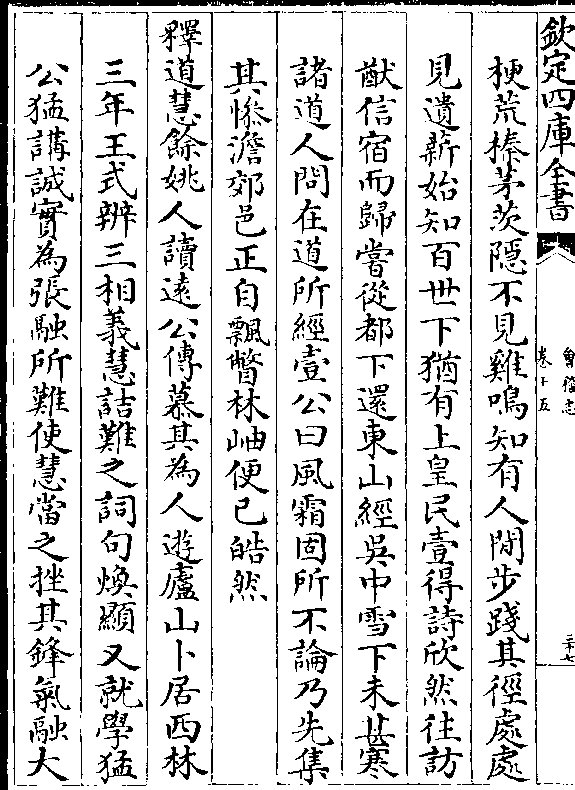 欽定四庫全書
會稽志
卷十五
二十七
梗荒榛茅茨隠不見雞鳴知有人閒步踐其徑處處
見遺薪始知百世下猶有上皇民壹得詩欣然往訪
猷信宿而歸嘗從都下還東山經吳中雪下未甚寒
諸道人問在道所經壹公曰風霜固所不論乃先集
其慘澹郊邑正自飄瞥林岫便已皓然
釋道慧餘姚人讀逺公傳慕其為人遊廬山卜居西林
三年王式辨三相義慧詰難之詞句煥顯又就學猛
公猛講誠實為張融所難使慧當之挫其鋒氣融大